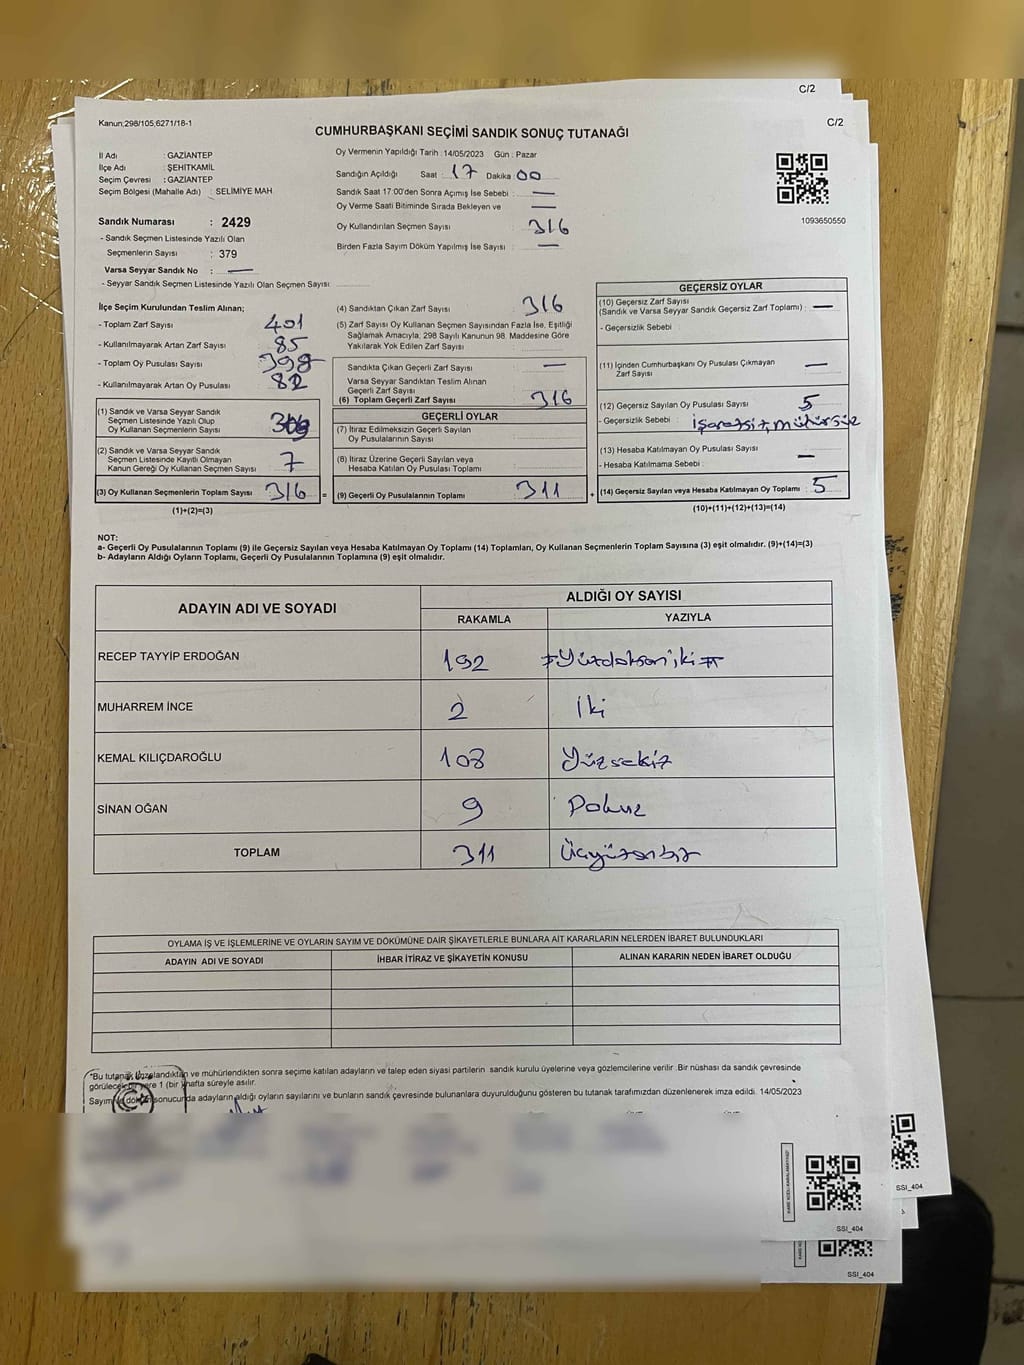 C/2
Kanun;298/105,6271/18-1
C/2
CUMHURBAŞKANI SEÇİMİ SANDIK SONUÇ TUTANAĞI
İl Adı : GAZİANTEP
İlçe Adı : ŞEHİTKAMİL
Seçim Çevresi : GAZİANTEP
Seçim Bölgesi (Mahalle Adı) : SELİMİYE MAH.
Sandık Numarası : 2429
- Sandık Seçmen Listesinde Yazılı Olan
Seçmenlerin Sayısı : 379
Varsa Seyyar Sandık No : —
- Seyyar Sandık Seçmen Listesinde Yazılı Olan Seçmen Sayısı:
Oy Vermenin Yapıldığı Tarih : 14/05/2023 Gün : Pazar
Sandığın Açıldığı Saat : 17 Dakika : 00
Sandık Saat 17:00'den Sonra Açımış İse Sebebi : —
Oy Verme Saati Bitiminde Sırada Bekleyen ve —
Oy Kullandırılan Seçmen Sayısı 316
Birden Fazla Sayım Döküm Yapılmış İse Sayısı : —
1093650550
İlçe Seçim Kurulundan Teslim Alınan;
- Toplam Zarf Sayısı 401
- Kullanılmayarak Artan Zarf Sayısı : 85
- Toplam Oy Pusulası Sayısı 398
- Kullanılmayarak Artan Oy Pusulası : 82
(1) Sandık ve Varsa Seyyar Sandık
Seçmen Listesinde Yazılı Olup
Oy Kullanan Seçmenlerin Sayısı
(2) Sandık ve Varsa Seyyar Sandık
Seçmen Listesinde Kayıtlı Olmayan
Kanun Gereği Oy Kullanan Seçmen Sayısı 7
(3) Oy Kullanan Seçmenlerin Toplam Sayısı 316 =
(1)+(2)=(3)
(4) Sandıktan Çıkan Zarf Sayısı 316
(5) Zarf Sayısı Oy Kullanan Seçmen Sayısından Fazla İse, Eşitliği
Sağlamak Amacıyla, 298 Sayılı Kanunun 98. Maddesine Göre
Yakılarak Yok Edilen Zarf Sayısı
Sandıkta Çıkan Geçerli Zarf Sayısı —
Varsa Seyyar Sandıktan Teslim Alınan
Geçerli Zarf Sayısı
(6) Toplam Geçerli Zarf Sayısı 316
GEÇERLİ OYLAR
(7) İtiraz Edilmeksizin Geçerli Sayılan
Oy Pusulalarının Sayısı
(8) İtiraz Üzerine Geçerli Sayılan veya
Hesaba Katılan Oy Pusulası Toplamı
(9) Geçerli Oy Pusulalarının Toplamı 311 +
GEÇERSİZ OYLAR
(10) Geçersiz Zarf Sayısı
(Sandık ve Varsa Seyyar Sandık Geçersiz Zarf Toplamı) : —
- Geçersizlik Sebebi :
(11) İçinden Cumhurbaşkanı Oy Pusulası Çıkmayan
Zarf Sayısı —
(12) Geçersiz Sayılan Oy Pusulası Sayısı 5
- Geçersizlik Sebebi : İşaretsiz, mühürsüz
(13) Hesaba Katılmayan Oy Pusulası Sayısı
- Hesaba Katılmama Sebebi : —
(14) Geçersiz Sayılan veya Hesaba Katılmayan Oy Toplamı : 5
(10)+(11)+(12)+(13)=(14)
NOT:
a- Geçerli Oy Pusulalarının Toplamı (9) ile Geçersiz Sayılan veya Hesaba Katılmayan Oy Toplamı (14) Toplamları, Oy Kullanan Seçmenlerin Toplam Sayısına (3) eşit olmalıdır. (9)+(14)=(3)
b- Adayların Aldığı Oyların Toplamı, Geçerli Oy Pusulalarının Toplamına (9) eşit olmalıdır.
ADAYIN ADI VE SOYADI
ALDIĞI OY SAYISI
RAKAMLA YAZIYLA
RECEP TAYYİP ERDOĞAN 192 Yüzdoksaniki
MUHARREM İNCE 2 İki
KEMAL KILIÇDAROĞLU 108 Yüzsekiz
SİNAN OĞAN 9 Dokuz
TOPLAM 311 Üçyüzonbir
OYLAMA İŞ VE İŞLEMLERİNE VE OYLARIN SAYIM VE DÖKÜMÜNE DAİR ŞİKAYETLERLE BUNLARA AİT KARARLARIN NELERDEN İBARET BULUNDUKLARI
ADAYIN ADI VE SOYADI İHBAR İTİRAZ VE ŞİKAYETİN KONUSU ALINAN KARARIN NEDEN İBARET OLDUĞU
*Bu tutanak imzalandıktan ve mühürlendikten sonra seçime katılan adayların ve talep eden siyasi partilerin sandık kurulu üyelerine veya gözlemcilerine verilir .Bir nüshası da sandık çevresinde
görülecek bir yere 1 (bir) hafta süreyle asılır.
Sayım ve döküm sonucunda adayların aldığı oyların sayılarını ve bunların sandık çevresinde bulunanlara duyurulduğunu gösteren bu tutanak tarafımızdan düzenlenerek imza edildi. 14/05/2023
SSI_404
SSI_404
SSI_404